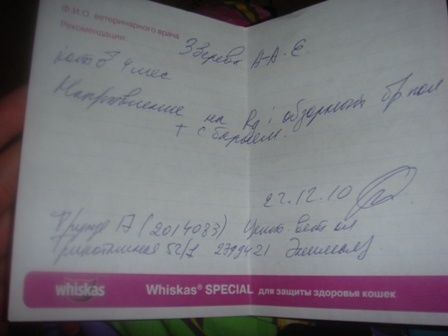 Ф.И.О. ветеринарного врача
Рекомендации
Зверева А.А.
кот ♂ 4 мес
Направление на Rg обзорный бр. пол
+ с барием.
22.12.10
(2014033)
Трикотажная 52/1 2799421
whiskas
Whiskas® SPECIAL для защиты здоровья кошек